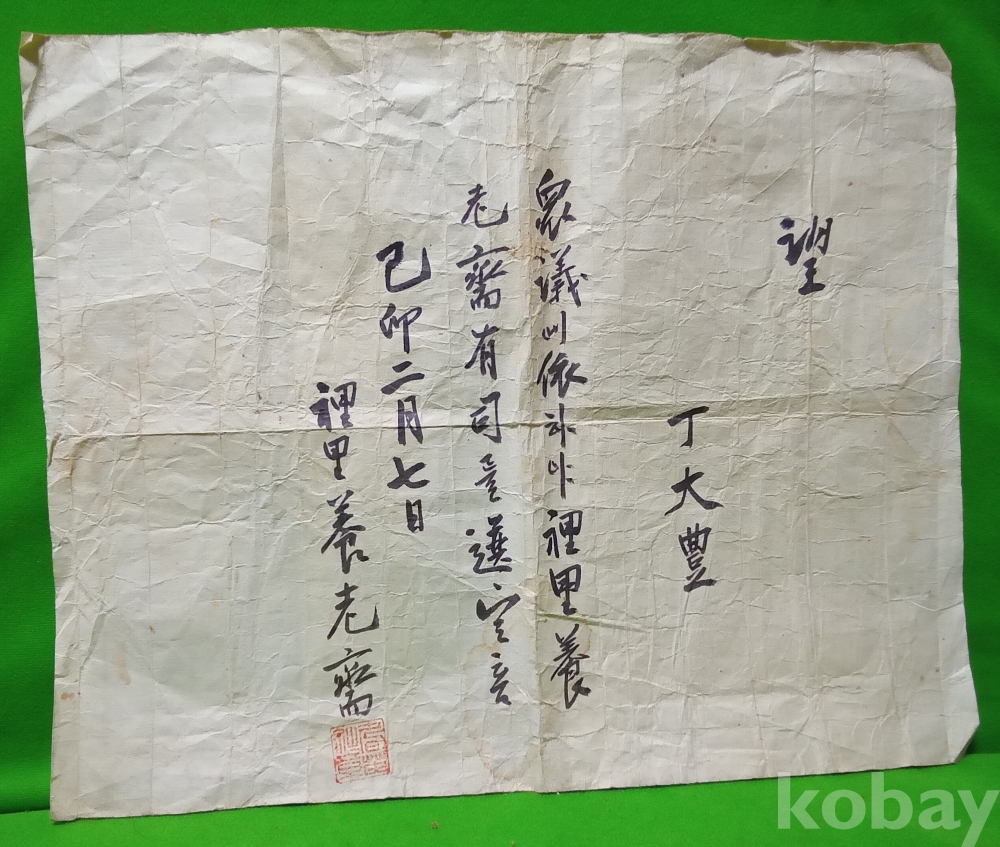 望
丁大豊
衆議에依하야裡里養
老齋有司로選定홈
己卯二月七日
裡里養老齋
kobay